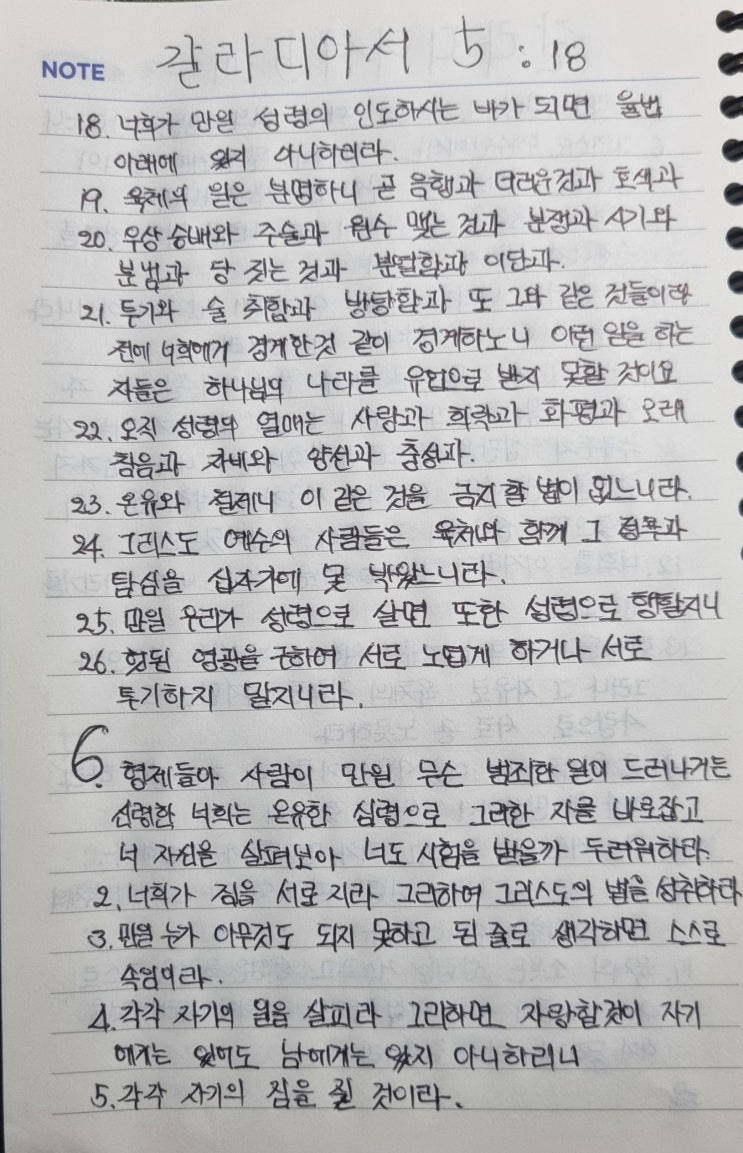 NOTE
갈라디아서 5:18
18. 너희가 만일 성령의 인도하시는 바가 되면 율법
아래에 있지 아니하리라.
19. 육체의 일은 분명하니 곧 음행과 더러운것과 호색과
20. 우상 숭배와 주술과 원수 맺는 것과 분쟁과 시기와
분냄과 당 짓는 것과 분열함과 이단과.
21. 투기와 술 취함과 방탕함과 또 그와 같은 것들이라
전에 너희에게 경계한것 같이 경계하노니 이런 일을 하는
자들은 하나님의 나라를 유업으로 받지 못할 것이요
22. 오직 성령의 열매는 사랑과 희락과 화평과 오래
참음과 자비와 양선과 충성과.
23. 온유와 절제니 이 같은 것을 금지할 법이 없느니라.
24. 그리스도 예수의 사람들은 육체와 함께 그 정욕과
탐심을 십자가에 못 박았느니라.
25. 만일 우리가 성령으로 살면 또한 성령으로 행할지니
26. 헛된 영광을 구하여 서로 노엽게 하거나 서로
투기하지 말지니라.
6. 형제들아 사람이 만일 무슨 범죄한 일이 드러나거든
신령한 너희는 온유한 심령으로 그러한 자를 바로잡고
너 자신을 살펴보아 너도 시험을 받을까 두려워하라.
2. 너희가 짐을 서로 지라 그리하여 그리스도의 법을 성취하라
3. 만일 누가 아무것도 되지 못하고 된 줄로 생각하면 스스로
속임이라.
4. 각각 자기의 일을 살피라 그리하면 자랑할것이 자기
에게는 있어도 남에게는 있지 아니하리니
5. 각각 자기의 짐을 질 것이라.